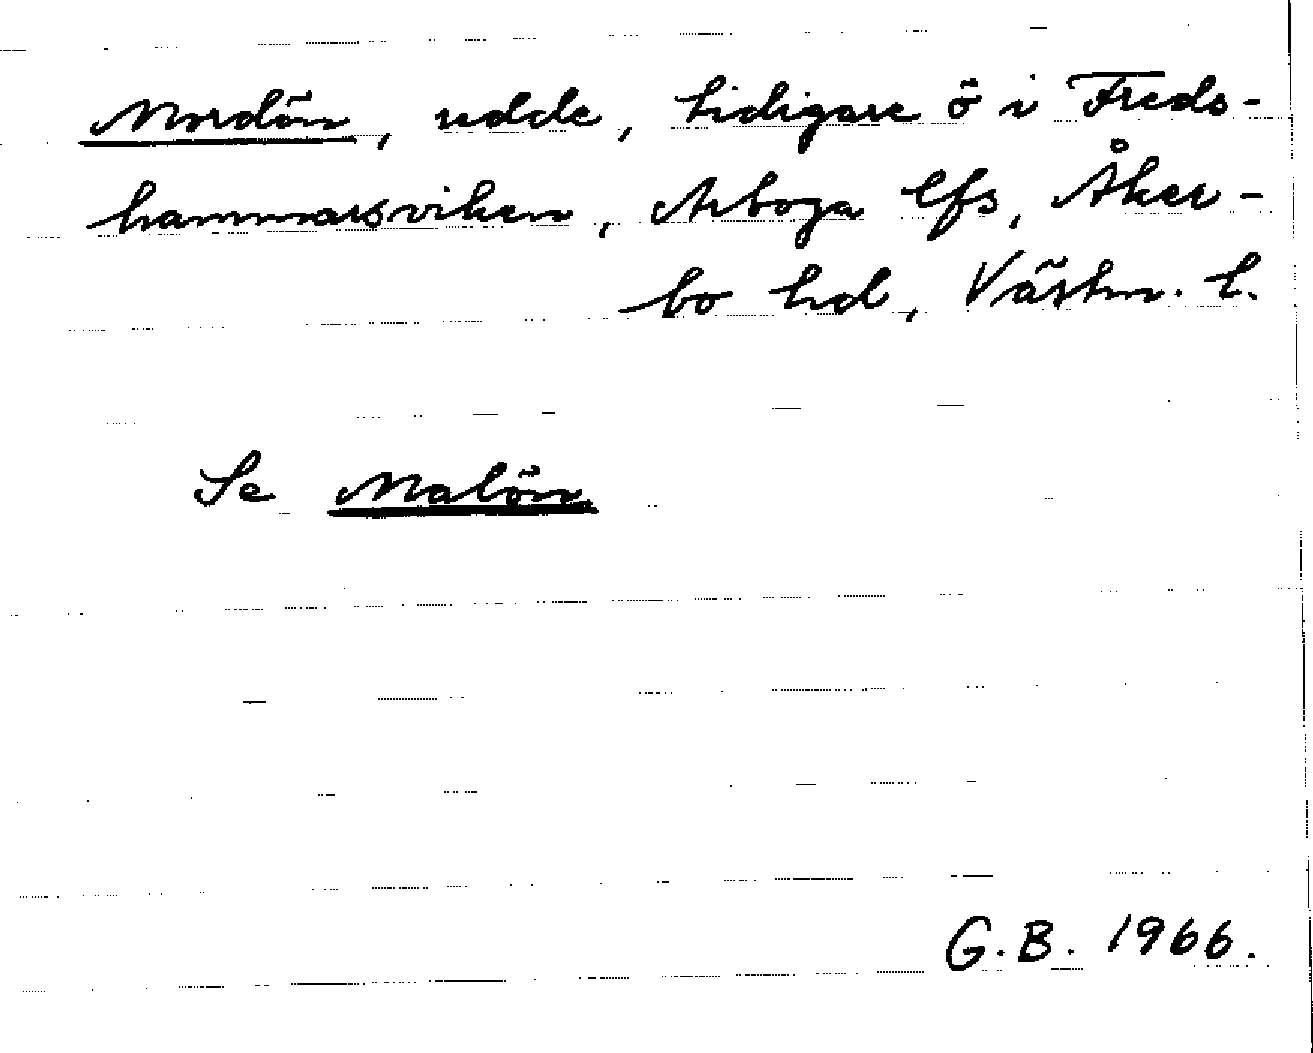 Nordön, udde, tidigare ö i Freds-
hammarsviken, Arboga lfs, Åker-
bo hd, Västm. l.
Se Malön.
G.B. 1966.